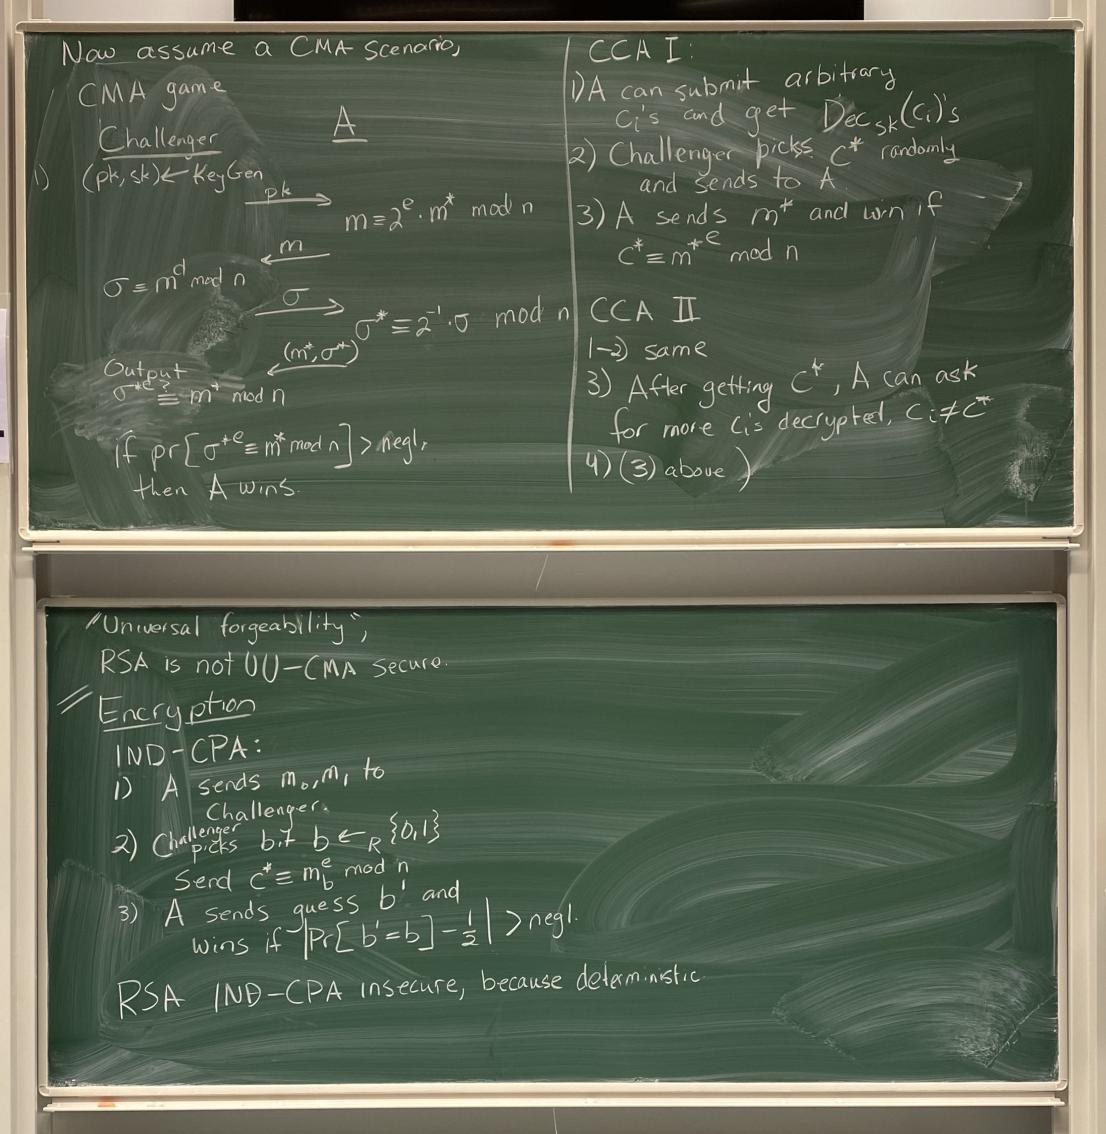 Now assume a CMA scenario,
CMA game
Challenger
A
1) (pk, sk) ← KeyGen
pk
m ≡ 2^e · m* mod n
m
σ ≡ m^d mod n
σ
σ* ≡ 2^-1 · σ mod n
(m*, σ*)
Output
σ*^e ≟ m* mod n
if pr[σ*^e ≡ m* mod n] > negl,
then A wins.
CCA I:
1) A can submit arbitrary
ci's and get Dec_sk(ci)'s
2) Challenger picks c* randomly
and sends to A
3) A sends m* and win if
c* ≡ m*^e mod n
CCA II
1-2) same
3) After getting c*, A can ask
for more ci's decrypted, ci ≠ c*
4) (3) above)
"Universal forgeability",
RSA is not UU-CMA secure.
Encryption
IND-CPA:
1) A sends m0, m1 to
Challenger.
2) Challenger
picks bit b ←R {0,1}
Send c* ≡ m_b^e mod n
3) A sends guess b' and
wins if |Pr[b'=b] - 1/2| > negl.
RSA IND-CPA insecure, because deterministic.